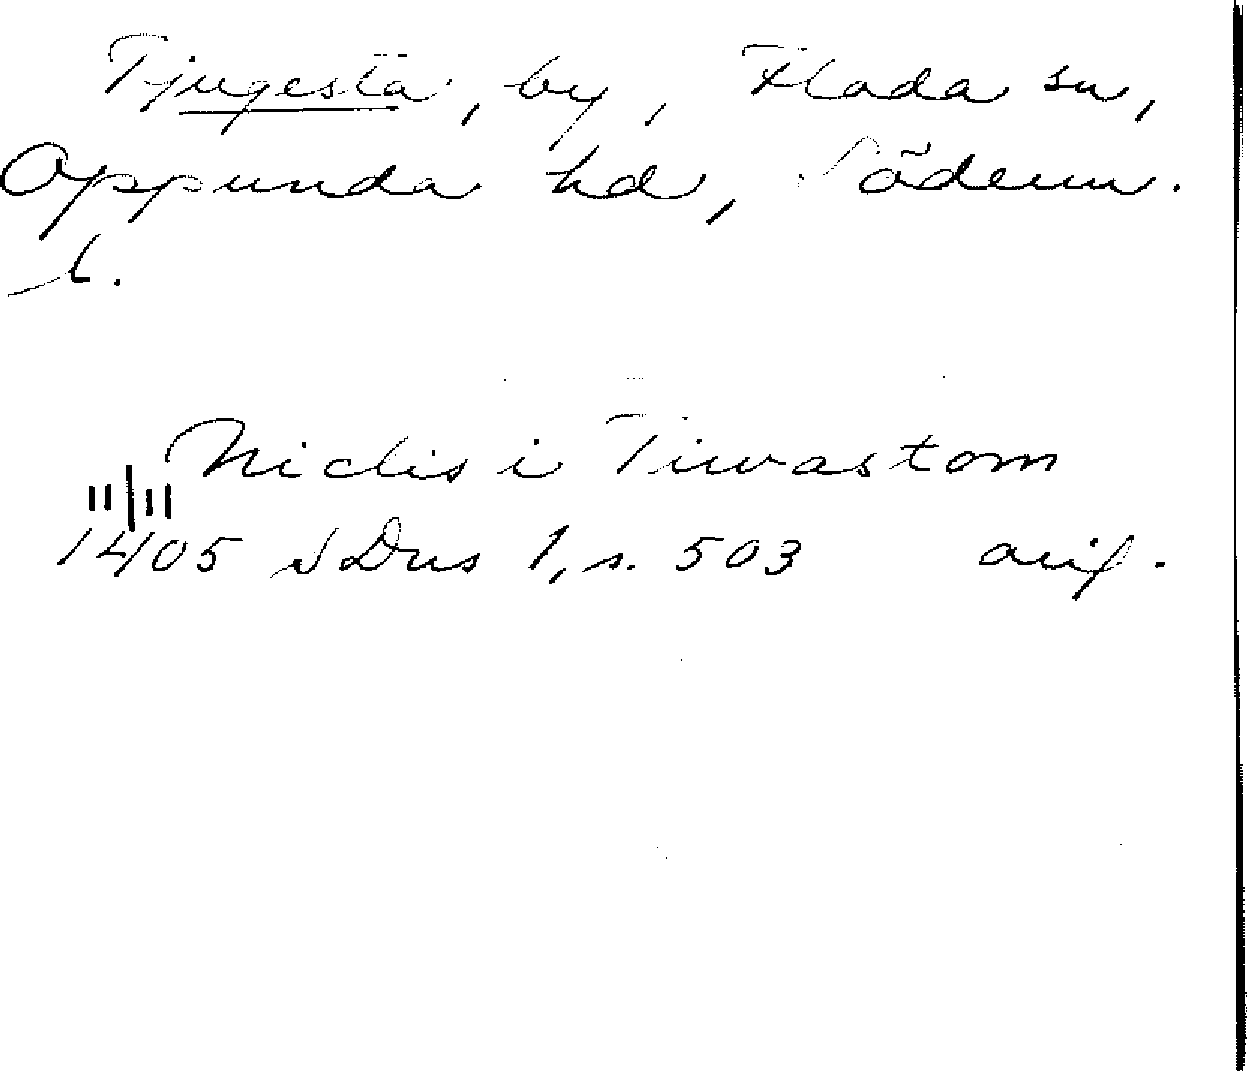 Tjugesta, by, Floda sn,
Oppunda hd, Söderm.
l.
Niclis i Tiwastom
11/11
1405 SDns 1, s. 503 avif.